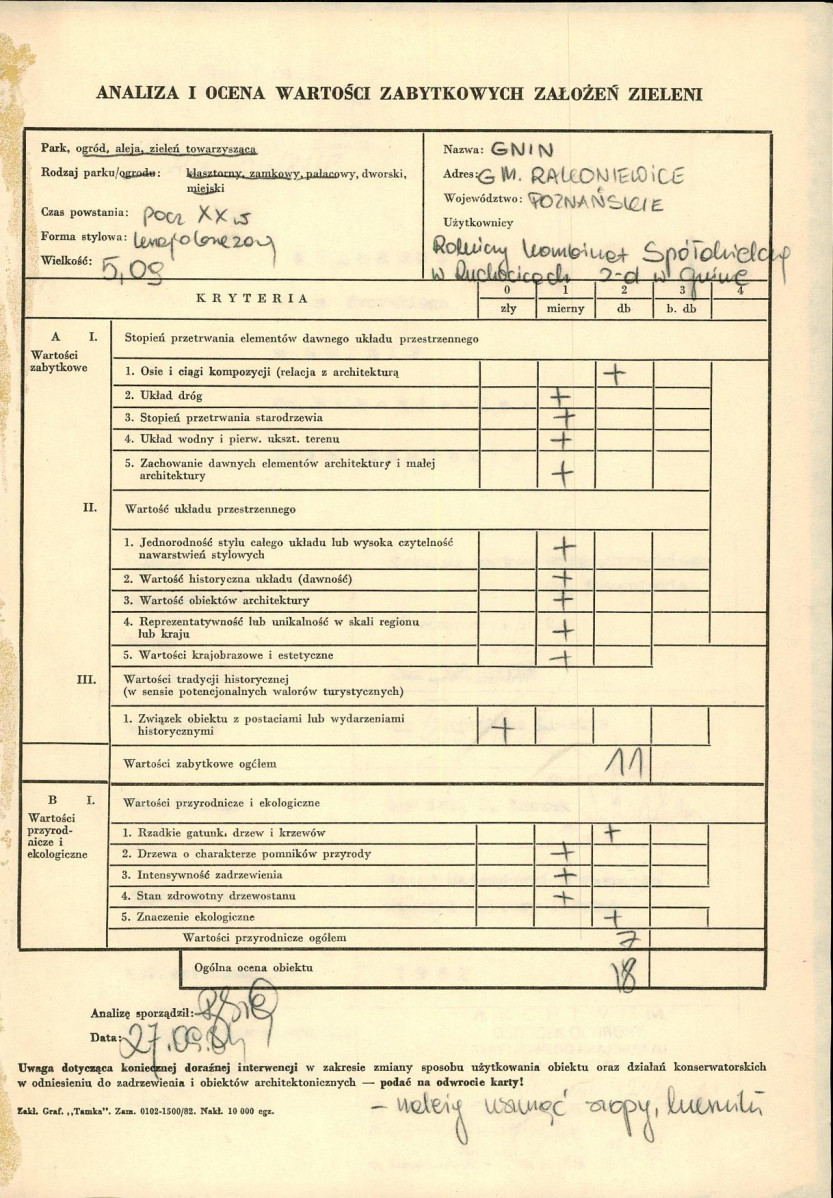 ANALIZA I OCENA WARTOŚCI ZABYTKOWYCH ZAŁOŻEŃ ZIELENI
Park, ogród, aleja, zieleń towarzysząca
Rodzaj parku/ogrodu: klasztorny, zamkowy, pałacowy, dworski, miejski
Czas powstania: pocz XX w
Forma stylowa:
Wielkość: 5,09
Nazwa: GNIN
Adres: GM. RAKONIEWICE
Województwo: POZNAŃSKIE
Użytkownicy
Rolniczy Kombinat Spółdzielczy
w Ruchocicach z-d w Gninie
KRYTERIA
0 1 2 3 4
zły mierny db b. db
A I. Stopień przetrwania elementów dawnego układu przestrzennego
Wartości
zabytkowe
1. Osie i ciągi kompozycji (relacja z architekturą +
2. Układ dróg +
3. Stopień przetrwania starodrzewia +
4. Układ wodny i pierw. ukszt. terenu +
5. Zachowanie dawnych elementów architektury i małej
architektury +
II. Wartość układu przestrzennego
1. Jednorodność stylu całego układu lub wysoka czytelność
nawarstwień stylowych +
2. Wartość historyczna układu (dawność) +
3. Wartość obiektów architektury +
4. Reprezentatywność lub unikalność w skali regionu
lub kraju +
5. Wartości krajobrazowe i estetyczne +
III. Wartości tradycji historycznej
(w sensie potencjonalnych walorów turystycznych)
1. Związek obiektu z postaciami lub wydarzeniami
historycznymi +
Wartości zabytkowe ogółem 11
B I. Wartości przyrodnicze i ekologiczne
Wartości
przyrod-
nicze i
ekologiczne
1. Rzadkie gatunki drzew i krzewów +
2. Drzewa o charakterze pomników przyrody +
3. Intensywność zadrzewienia +
4. Stan zdrowotny drzewostanu +
5. Znaczenie ekologiczne +
Wartości przyrodnicze ogółem 7
Ogólna ocena obiektu 18
Analizę sporządził:
Data: 27.09.84
Uwaga dotycząca koniecznej doraźnej interwencji w zakresie zmiany sposobu użytkowania obiektu oraz działań konserwatorskich
w odniesieniu do zadrzewienia i obiektów architektonicznych — podać na odwrocie karty!
Zakł. Graf. „Tamka". Zam. 0102-1500/82. Nakł. 10 000 egz.
- należy usunąć szopy,